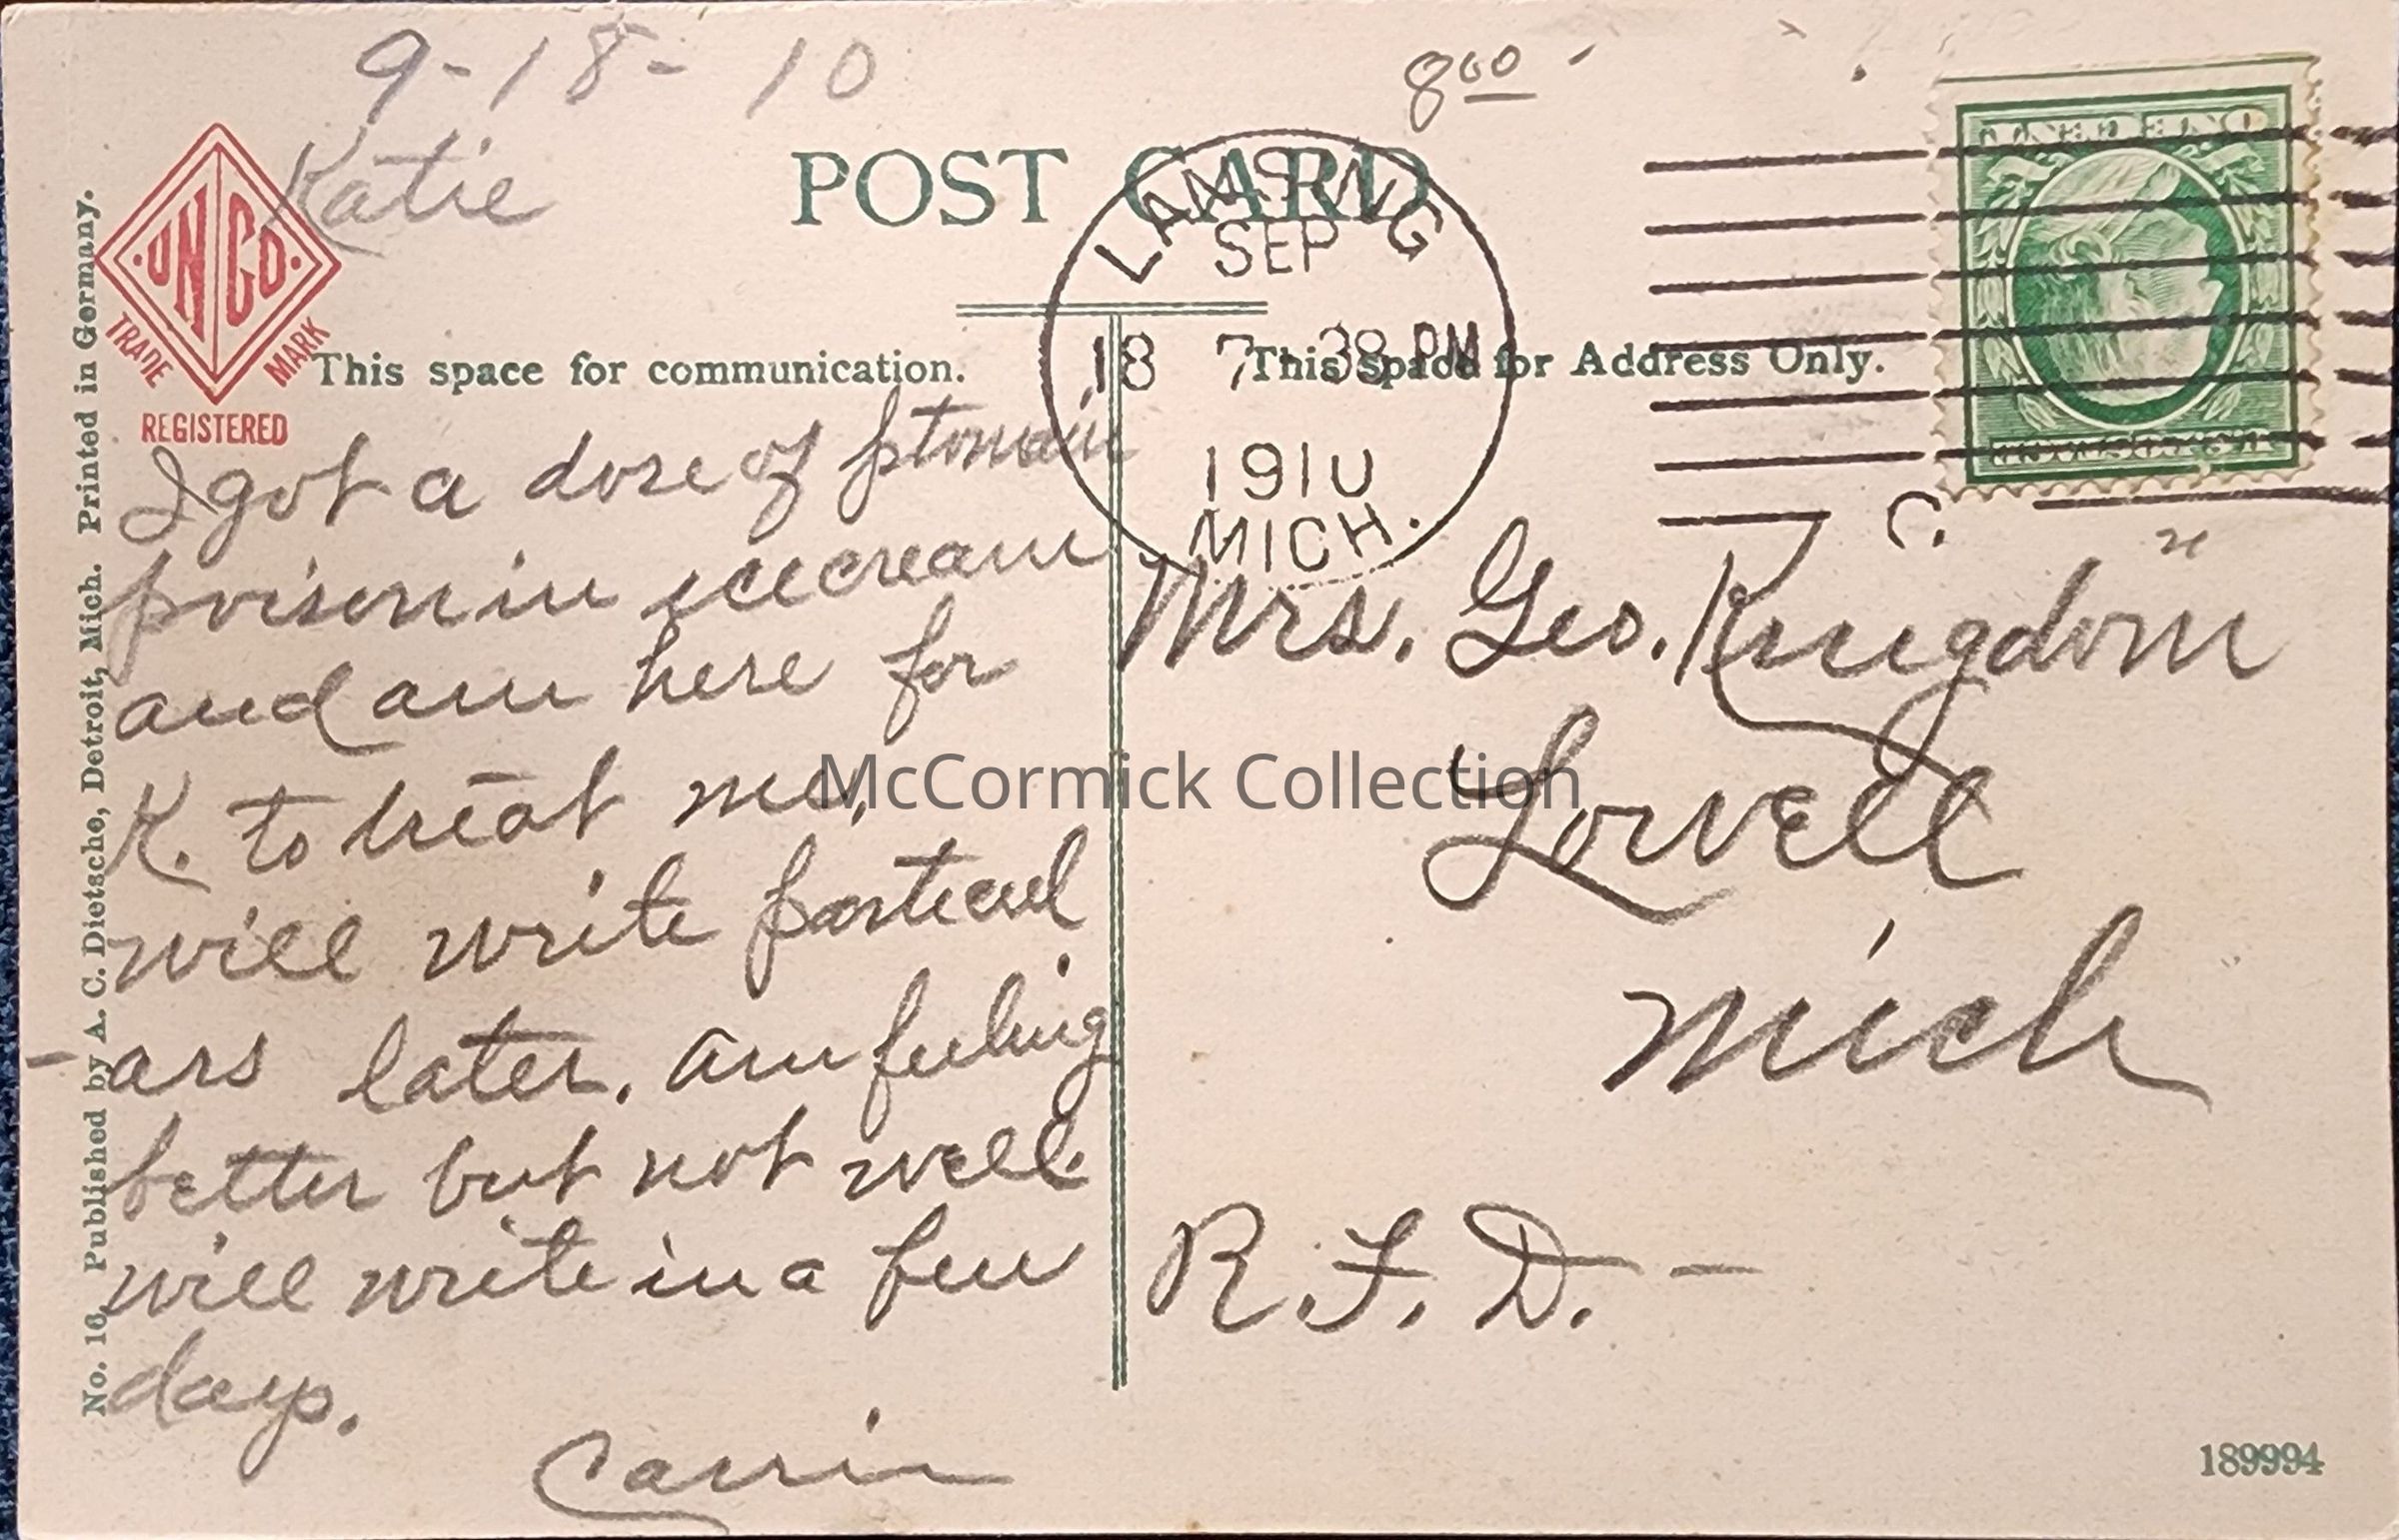 9-18-10
8 00
Katie
POST CARD
UN CO.
TRADE MARK
REGISTERED
LANSING
SEP
18 7 - 38 PM
1910
MICH.
C.
This space for communication.
This space for Address Only.
I got a dose of ptomain
poison in icecream
and am here for
K. to treat me.
will write particul
-ars later. am feeling
better but not well.
will write in a few
days.
Carrie
Mrs. Geo. Kingdom
Lowell
Mich
R.F.D. -
No. 16 Published by A. C. Dietsche, Detroit, Mich. Printed in Germany.
McCormick Collection
189994